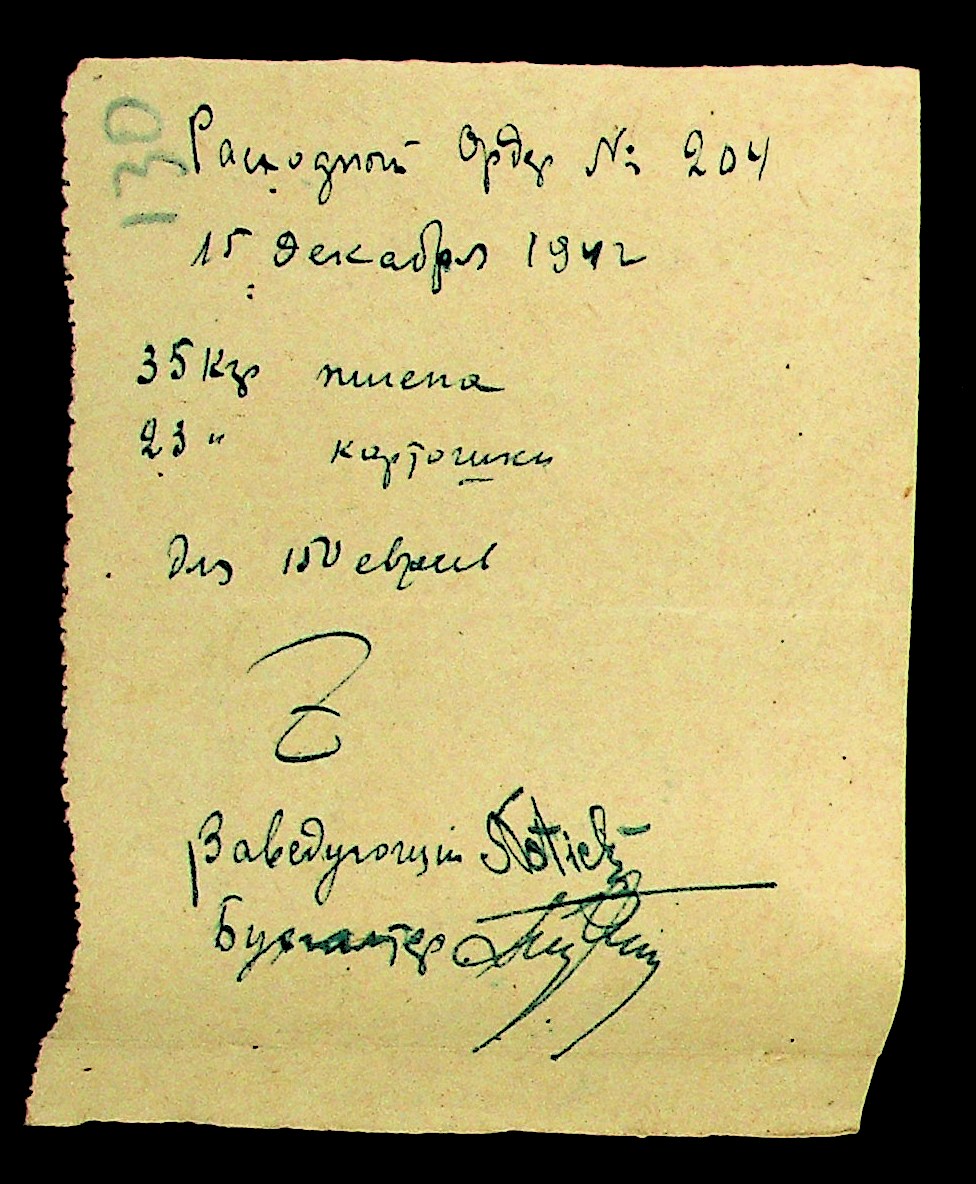 130
Расходный Ордер №: 204
15 декабря 1942
35 кгр пшена
23 " картошки
для 150 евреев
Заведующий
Бухгалтер